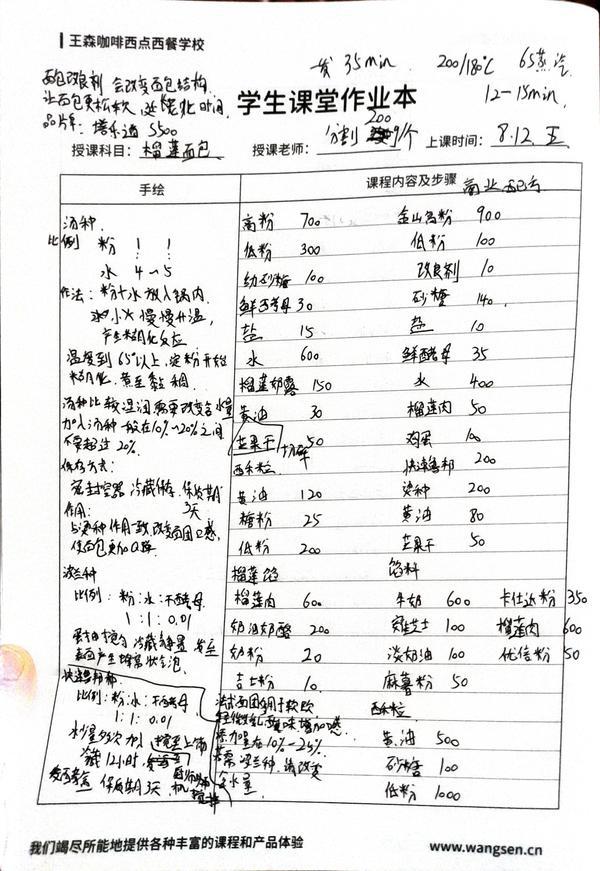 王森咖啡西点西餐学校
发 35min 200/180℃ 6S蒸汽
12-15min
面包改良剂 会改变面包结构
让面包更松软 延长老化时间
学生课堂作业本
200
分割 9个
授课科目：榴莲面包 授课老师： 上课时间：8.12 五
手绘
课程内容及步骤 商业配方
汤种
比例 粉 1 1
水 4~5
作法：粉+水放入锅内
小火慢慢升温，
产生糊化反应
温度到65°以上，淀粉开始
糊化，煮至黏稠
汤种比较湿润需要改变含水量
加入汤种一般在10%~20%之间
不要超过20%
保存方式：
密封容器 冷藏储存 保质期
3天
作用：
与烫种作用一致，改变面团口感
使面包更加Q弹
波兰种
比例：粉：水：干酵母
1：1：0.01
冷藏静置 发至
表面产生蜂窝状气泡
快速鲁邦
比例：粉：水：干酵母
1：1：0.01
水分多次加入
冷藏12小时
保质期3天
高粉 700
低粉 300
幼砂糖 100
鲜酵母 30
盐 15
水 600
榴莲奶露 150
黄油 30
芒果干 50 切碎
西米粒
黄油 120
糖粉 25
低粉 200
榴莲馅
榴莲肉 600
奶油奶酪 200
奶粉 20
吉士粉 10
金山面粉 900
低粉 100
改良剂 10
砂糖 140
盐 10
鲜酵母 35
水 400
榴莲肉 50
鸡蛋 100
快速鲁邦 200
烫种 200
黄油 80
芒果干 50
馅料
牛奶 600 卡仕达粉 350
芝士 100 榴莲肉 600
淡奶油 100 优倍粉 50
麻薯粉 50
法式面团多用于软欧
添加量在10%~25%
若需波兰种，请改变
含水量
西米粒
黄油 500
砂糖 100
低粉 1000
我们竭尽所能地提供各种丰富的课程和产品体验
www.wangsen.cn